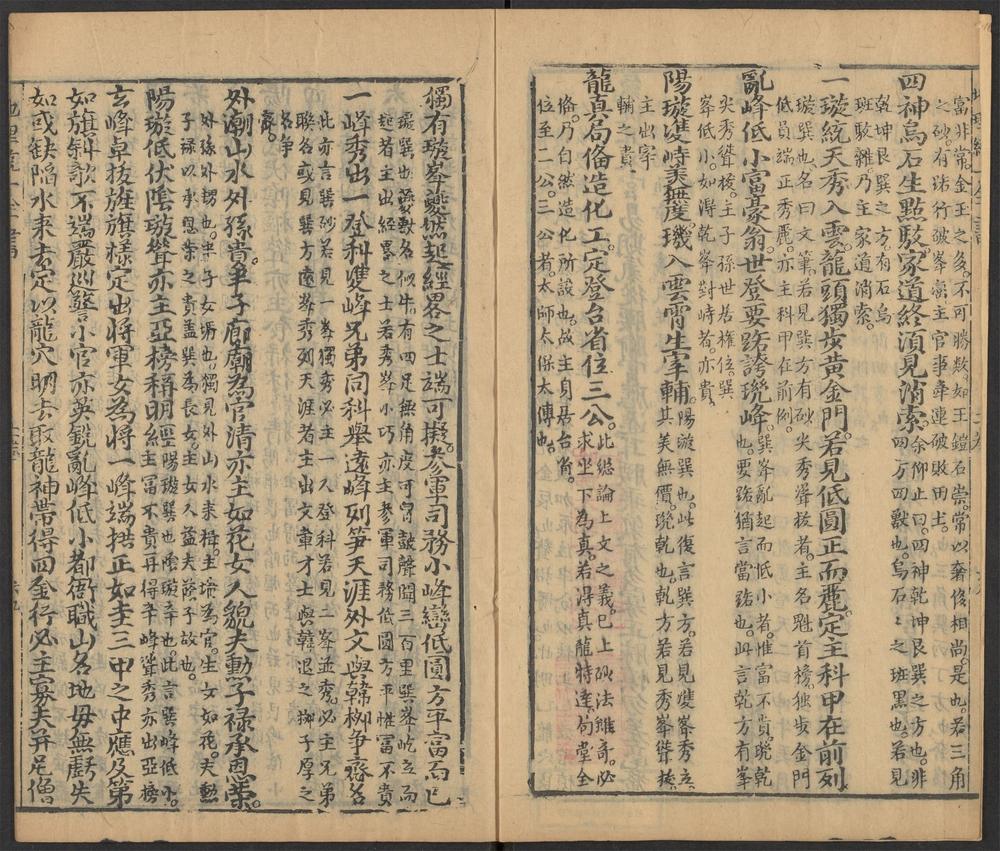 富非常金玉之多不可勝数如王鎧石崇常以奢侈相尚是也若三角
之砂有路行破峯凛主官事牽連破敗田土
四神烏石生點駁家道終須見消索余仰止曰四神乾坤艮巽之方也非四方四獸也烏石石之班黑也若見
乾坤艮巽之方有石烏
班駁雜乃主家道消索
一璇統天秀入雲龍頭獨步黃金門若見低圓正而麗定主科甲在前列
璇巽也名曰文筆若見巽方有砂尖秀聳拔者主名魁首榜獨步金門
低員端正秀麗亦主科甲在前例
亂峰低小富豪翁世登要路誇㒯峰巽峯亂起而低小者惟富不貴㒯乾也要路猶言當路也此言乾方有峯
尖秀聳拔主子孫世居權位巽
峯低小如得乾峯對峙者亦貴
陽璇雙峙羙無度璣入雲霄生宰輔陽璇巽也此復言巽方若見雙峯秀立其美無價㒯乾也乾方若見秀峯聳拔
主出宰
輔之貴
龍真局備造化工定登台省位三公此總論上文之義巳上砂法雖奇必求坐下為真若得真龍特達局堂全
俻乃自然造化所設也故主身居台省
位至三公三公者太師太保太傅也
獨有璇峯夔然起經畧之士端可擬參軍司務小峰巒低圓方平富而巳
璇巽也夔獸名似牛有四足無角皮可冐鼓聲聞三百里巽峯屹立而
起者主出經畧之士若秀峯小巧亦主參軍司務低圓方平惟富不貴
一峰秀出一登科雙峰兄弟同科舉遠峰列笋天涯外文與韓柳爭齋名
此亦言巽砂若見一峯獨秀必主一人登科若見二峯並秀必主兄弟
聯名或見巽方遠峯秀列天涯者主出文章才士與韓退之柳子厚之
名爭
齋
外潮山水外孫貴半子廊廟為官清亦主如花女人貌夫勳子禄承恩榮
外孫外甥也半子女壻也獨見外山水来權主壻為官生女如花夫勳
子祿以承恩榮之貴盖巽為長女主出女人益夫蔭子故也
陽璇低伏陰璇聳亦主亞榜稱明經陽璇巽也陰璇辛也此言巽峰低小主富不貴再得辛峰聳秀亦出亞榜
玄峰卓拔旌旗樣定出將軍女為將一峰端拱正如圭三甲之中應及第
如旗斜欹不端嚴巡警小官亦英銳亂峰低小都衙職山名地毋無虧失
如或缺陷水来去定以龍穴明去取龍神帶得四金行必主寡夫并尼僧